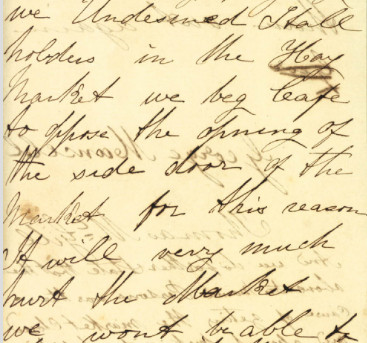 we Undesined Stall
holders in the Hay
Market we beg leafe
to oppose the opning of
the side door of the
Market for this reason
It will very much
hurt the Market
we wont be able to